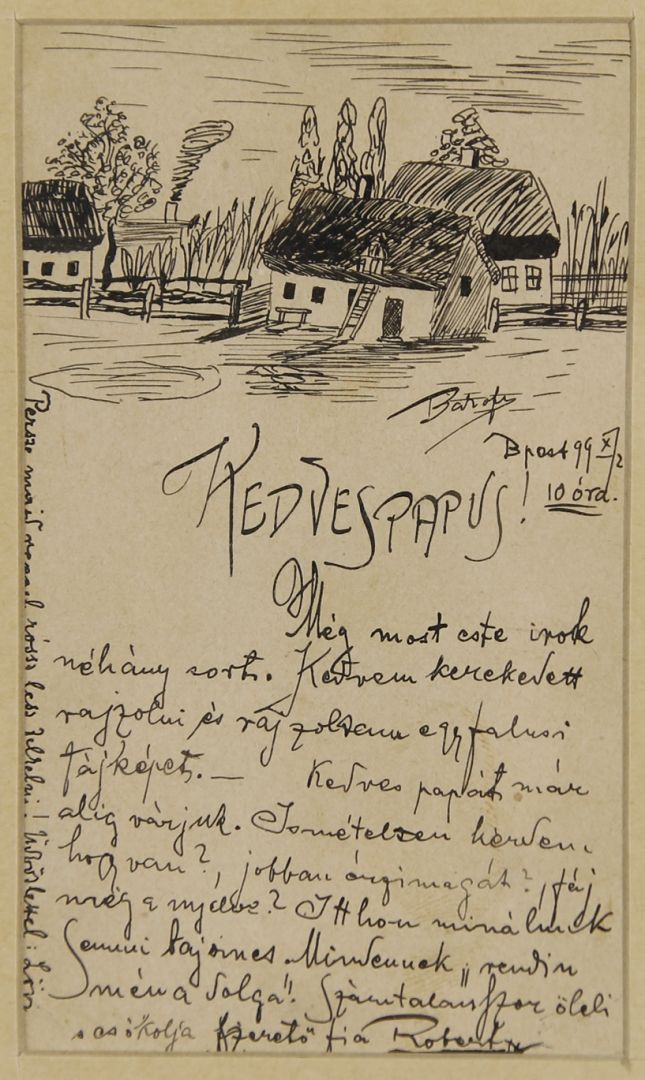 Bpest 99 X/2
10 óra.
KEDVES PAPUS!
Még most este irok
néhány sort. Kedvem kerekedett
rajzolni és rájzoltam egy falusi
tájképet. — Kedves papát már
alig várjuk. Ismételten kérdem
hogy van?, jobban érzi magát?, fáj
még a nyelve? Itthon minálunk
Semmi baj sincs. Mindennek „rendin
mén a dolga"! Számtalanszor öleli
s csókolja szerető fia Robert
Persze majd rossz lesz ! Üdvözlettel: